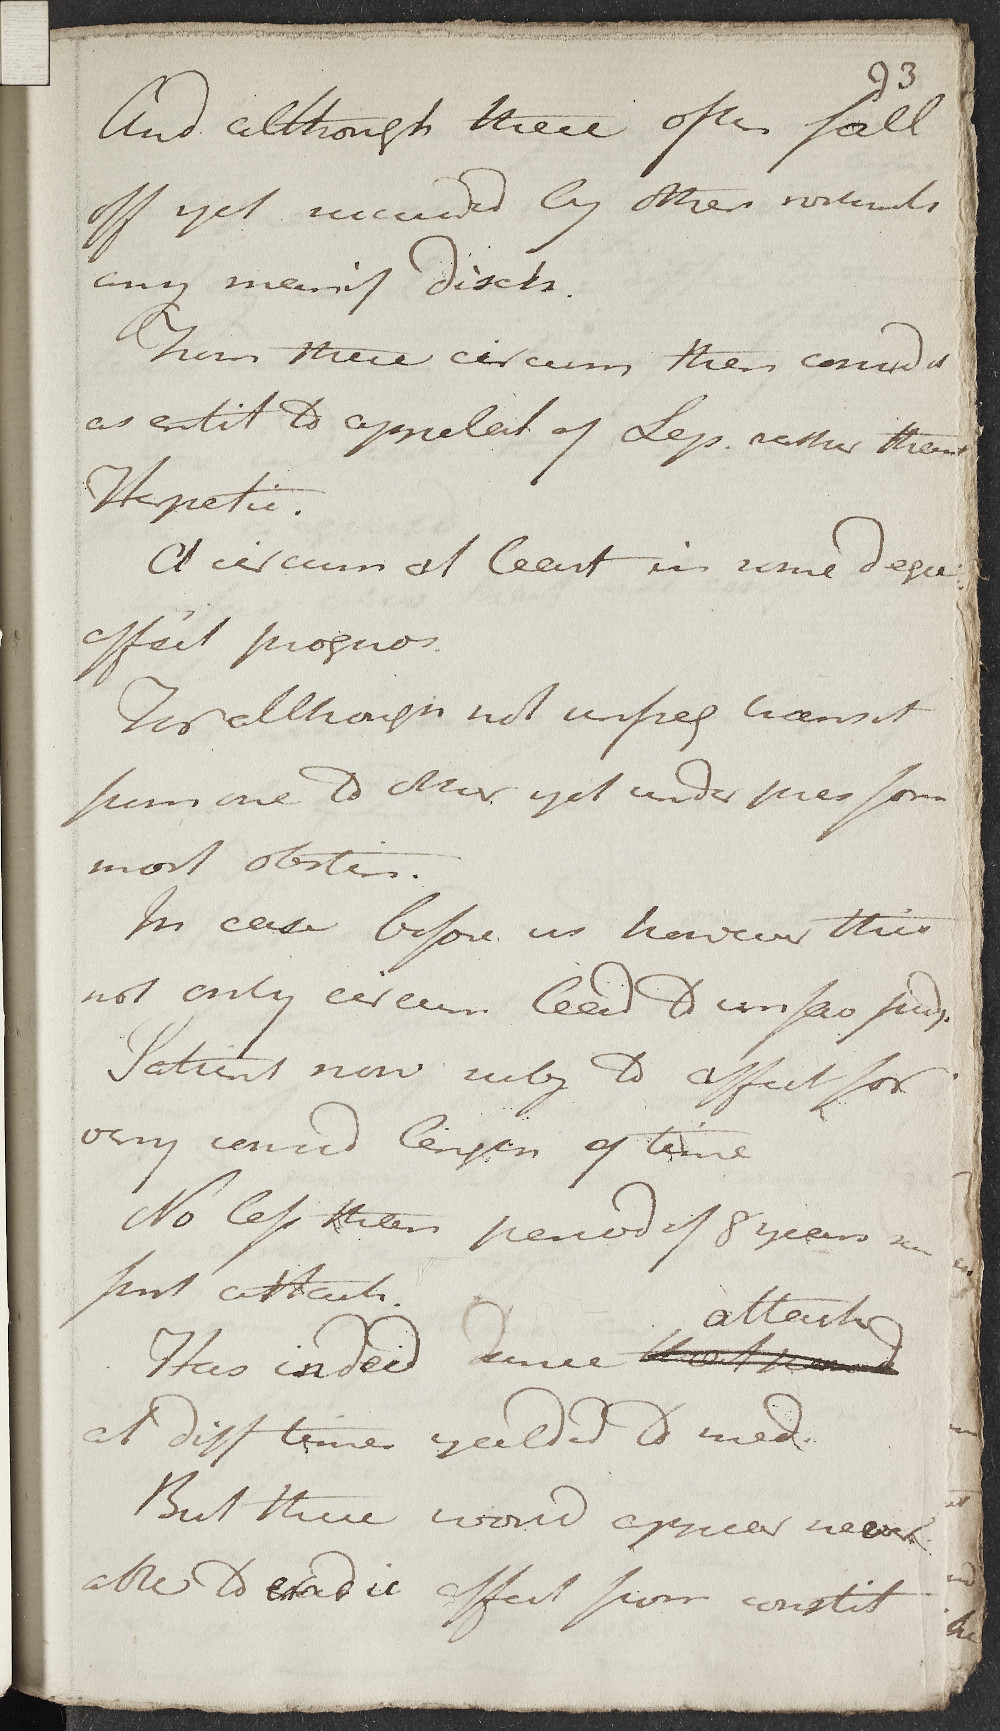 93
And although these often fall
off yet succeeded by others without
any manif disch.
From these circum then consid it
as entit to appelat of Lep. rather than
Herpetic.
A circum at least in some degree
affect prognos.
For although not unfreq transit
from one to other yet under pres form
most obstin.
In case before us however this
not only circum lead to unfav judg.
Patient now subj to affect for
very consid length of time
No less than period of 8 years
first attack.
attack
Has indeed since that period
at diff times yeilded to med.
But there would appear never
able to eradic affect from constit